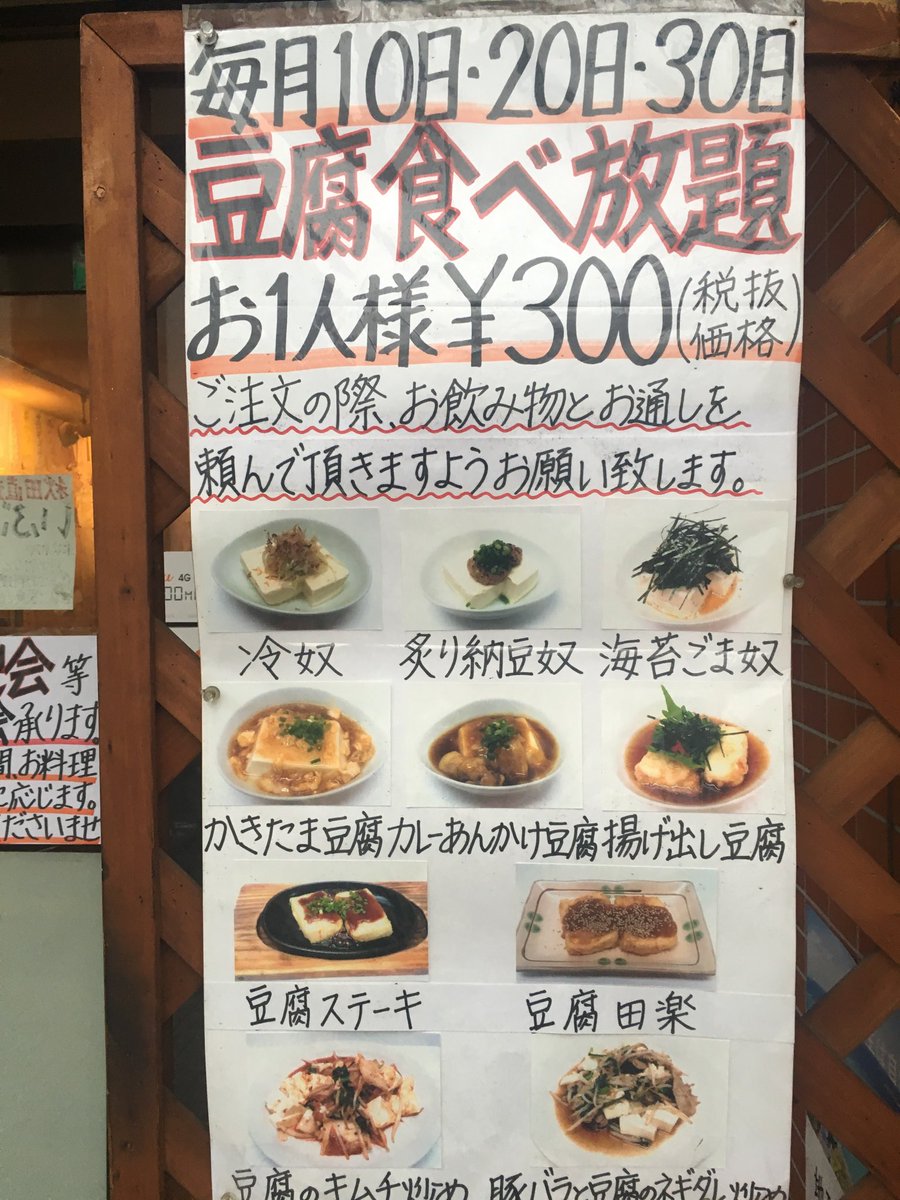 毎月10日・20日・30日
豆腐食べ放題
お1人様¥300(税抜価格)
ご注文の際、お飲み物とお通しを
頼んで頂きますようお願い致します。
冷奴 炙り納豆奴 海苔ごま奴
かきたま豆腐 カレーあんかけ豆腐 揚げ出し豆腐
豆腐ステーキ 豆腐田楽
豆腐のキムチ炒め 豚バラと豆腐のネギダレ炒め
秋田直
4G
会等
承ります
お料理
応じます。
くださいませ